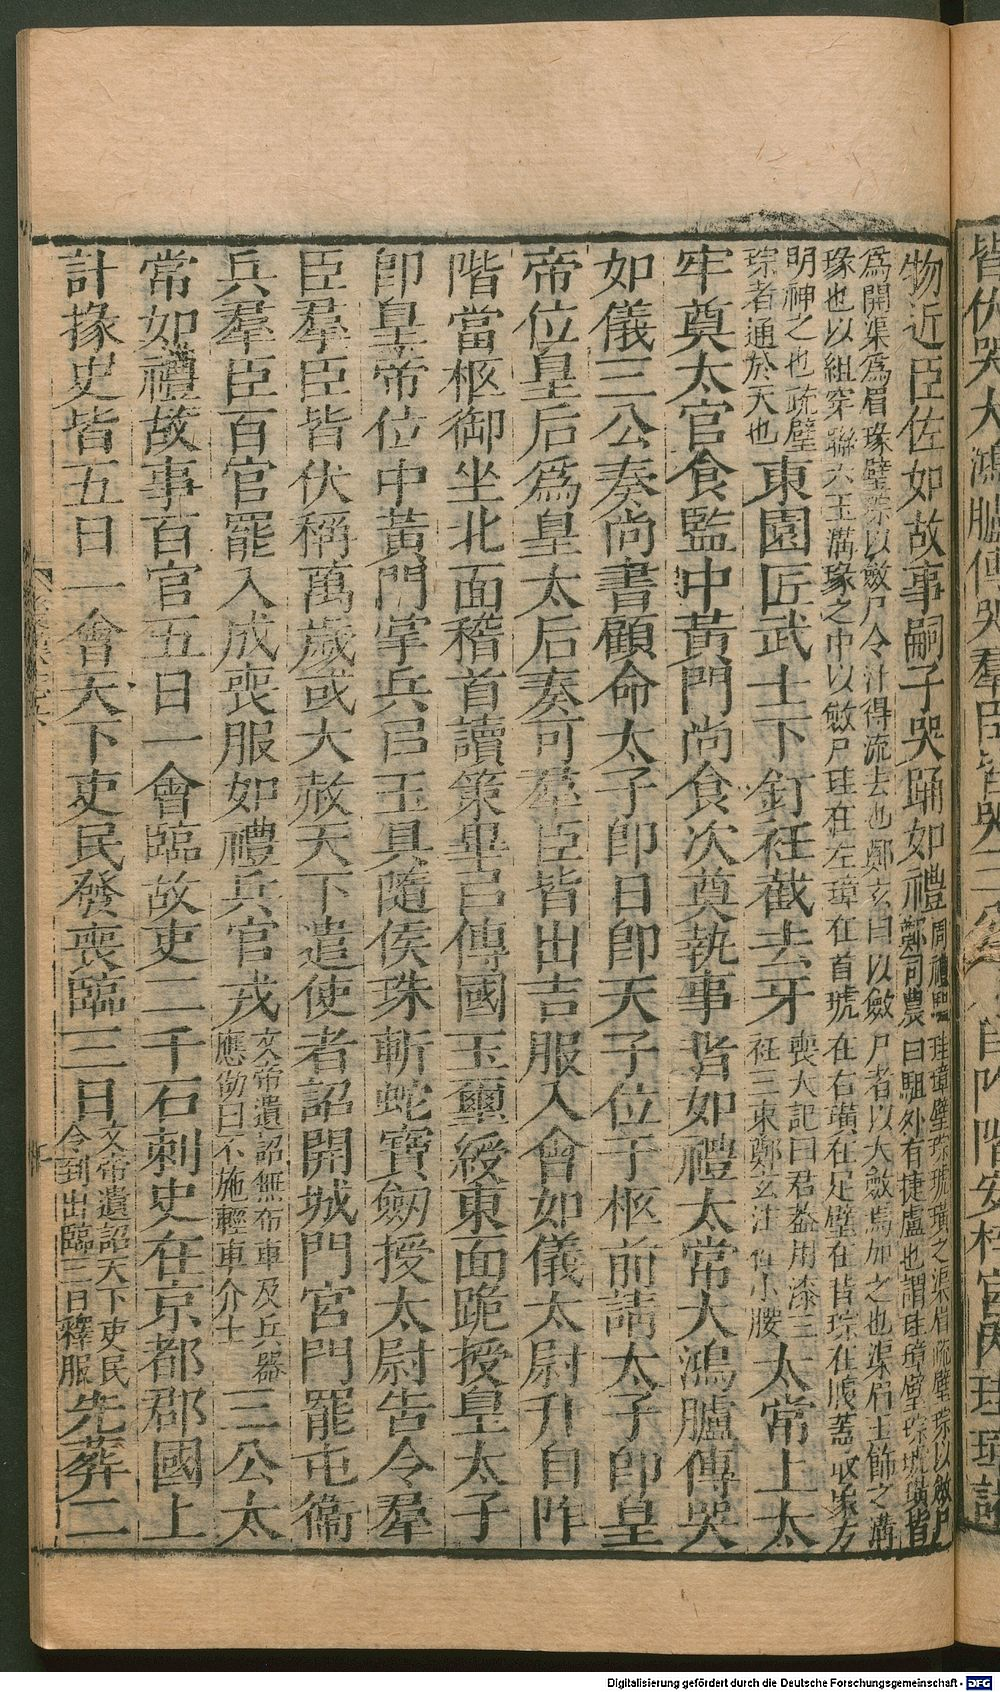 物近臣佐如故事嗣子哭踊如禮周禮駔珪璋璧琮琥璜之渠眉疏璧琮以斂尸鄭司農曰駔外有捷盧也謂珪璋璧琮琥璜皆
爲開渠爲眉瑑璧琮以斂尸令汁得流去也鄭玄曰以斂尸者以大斂焉加之也渠眉玉飾之溝
瑑也以組穿聯六玉溝瑑之中以斂尸珪在左璋在首琥在右璜在足璧在背琮在腹蓋取象方
明神之也疏璧琮者通於天也東園匠武士下釘衽截去牙喪大記曰君蓋用漆三衽三束鄭玄注衽小腰太常上太
牢奠太官食監中黃門尚食次奠執事者如禮太常大鴻臚傳哭
如儀三公奏尚書顧命太子卽日卽天子位于柩前請太子卽皇
帝位皇后爲皇太后奏可羣臣皆出吉服入會如儀太尉升自阼
階當柩御坐北面稽首讀策畢㠯傳國玉璽綬東面跪授皇太子
卽皇帝位中黃門掌兵㠯玉具隨侯珠斬蛇寶劒授太尉告令羣
臣羣臣皆伏稱萬歲或大赦天下遣使者詔開城門宮門罷屯衞
兵羣臣百官罷入成喪服如禮兵官戎文帝遺詔無布車及兵器應劭曰不施輕車介士三公太
常如禮故事百官五日一會臨故吏二千石刺史在京都郡國上
計掾史皆五日一會天下吏民發喪臨三日文帝遺詔天下吏民令到出臨三日釋服先葬二
皆伏哭大鴻臚傳哭羣臣皆哭
自阼階安梓宮內珪璋諸
Digitalisierung gefördert durch die Deutsche Forschungsgemeinschaft - DFG